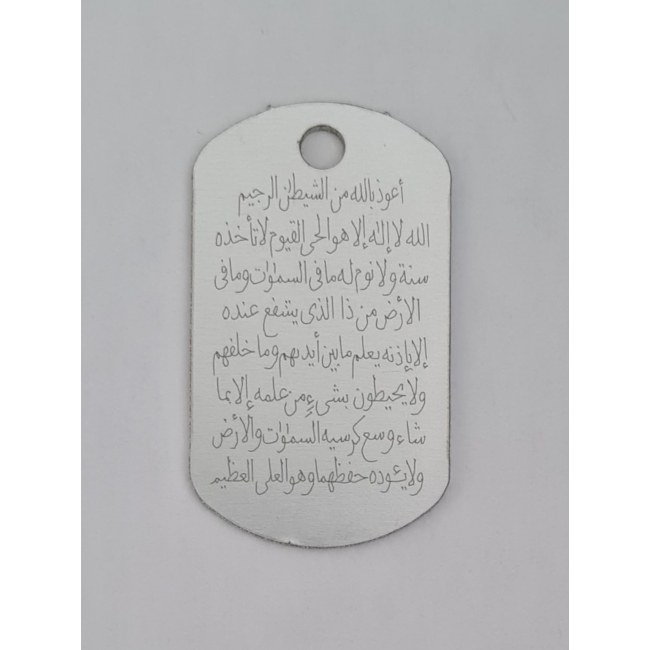 أعوذ بالله من الشيطٰن الرجيم
الله لا إلٰه إلا هو الحى القيوم لا تأخذه
سنة ولا نوم له ما فى السمٰوٰت وما فى
الأرض من ذا الذى يشفع عنده
إلا بإذنه يعلم ما بين أيديهم وما خلفهم
ولا يحيطون بشىءٍ من علمه إلا بما
شاء وسع كرسيه السمٰوٰت والأرض
ولا يئوده حفظهما وهو العلى العظيم